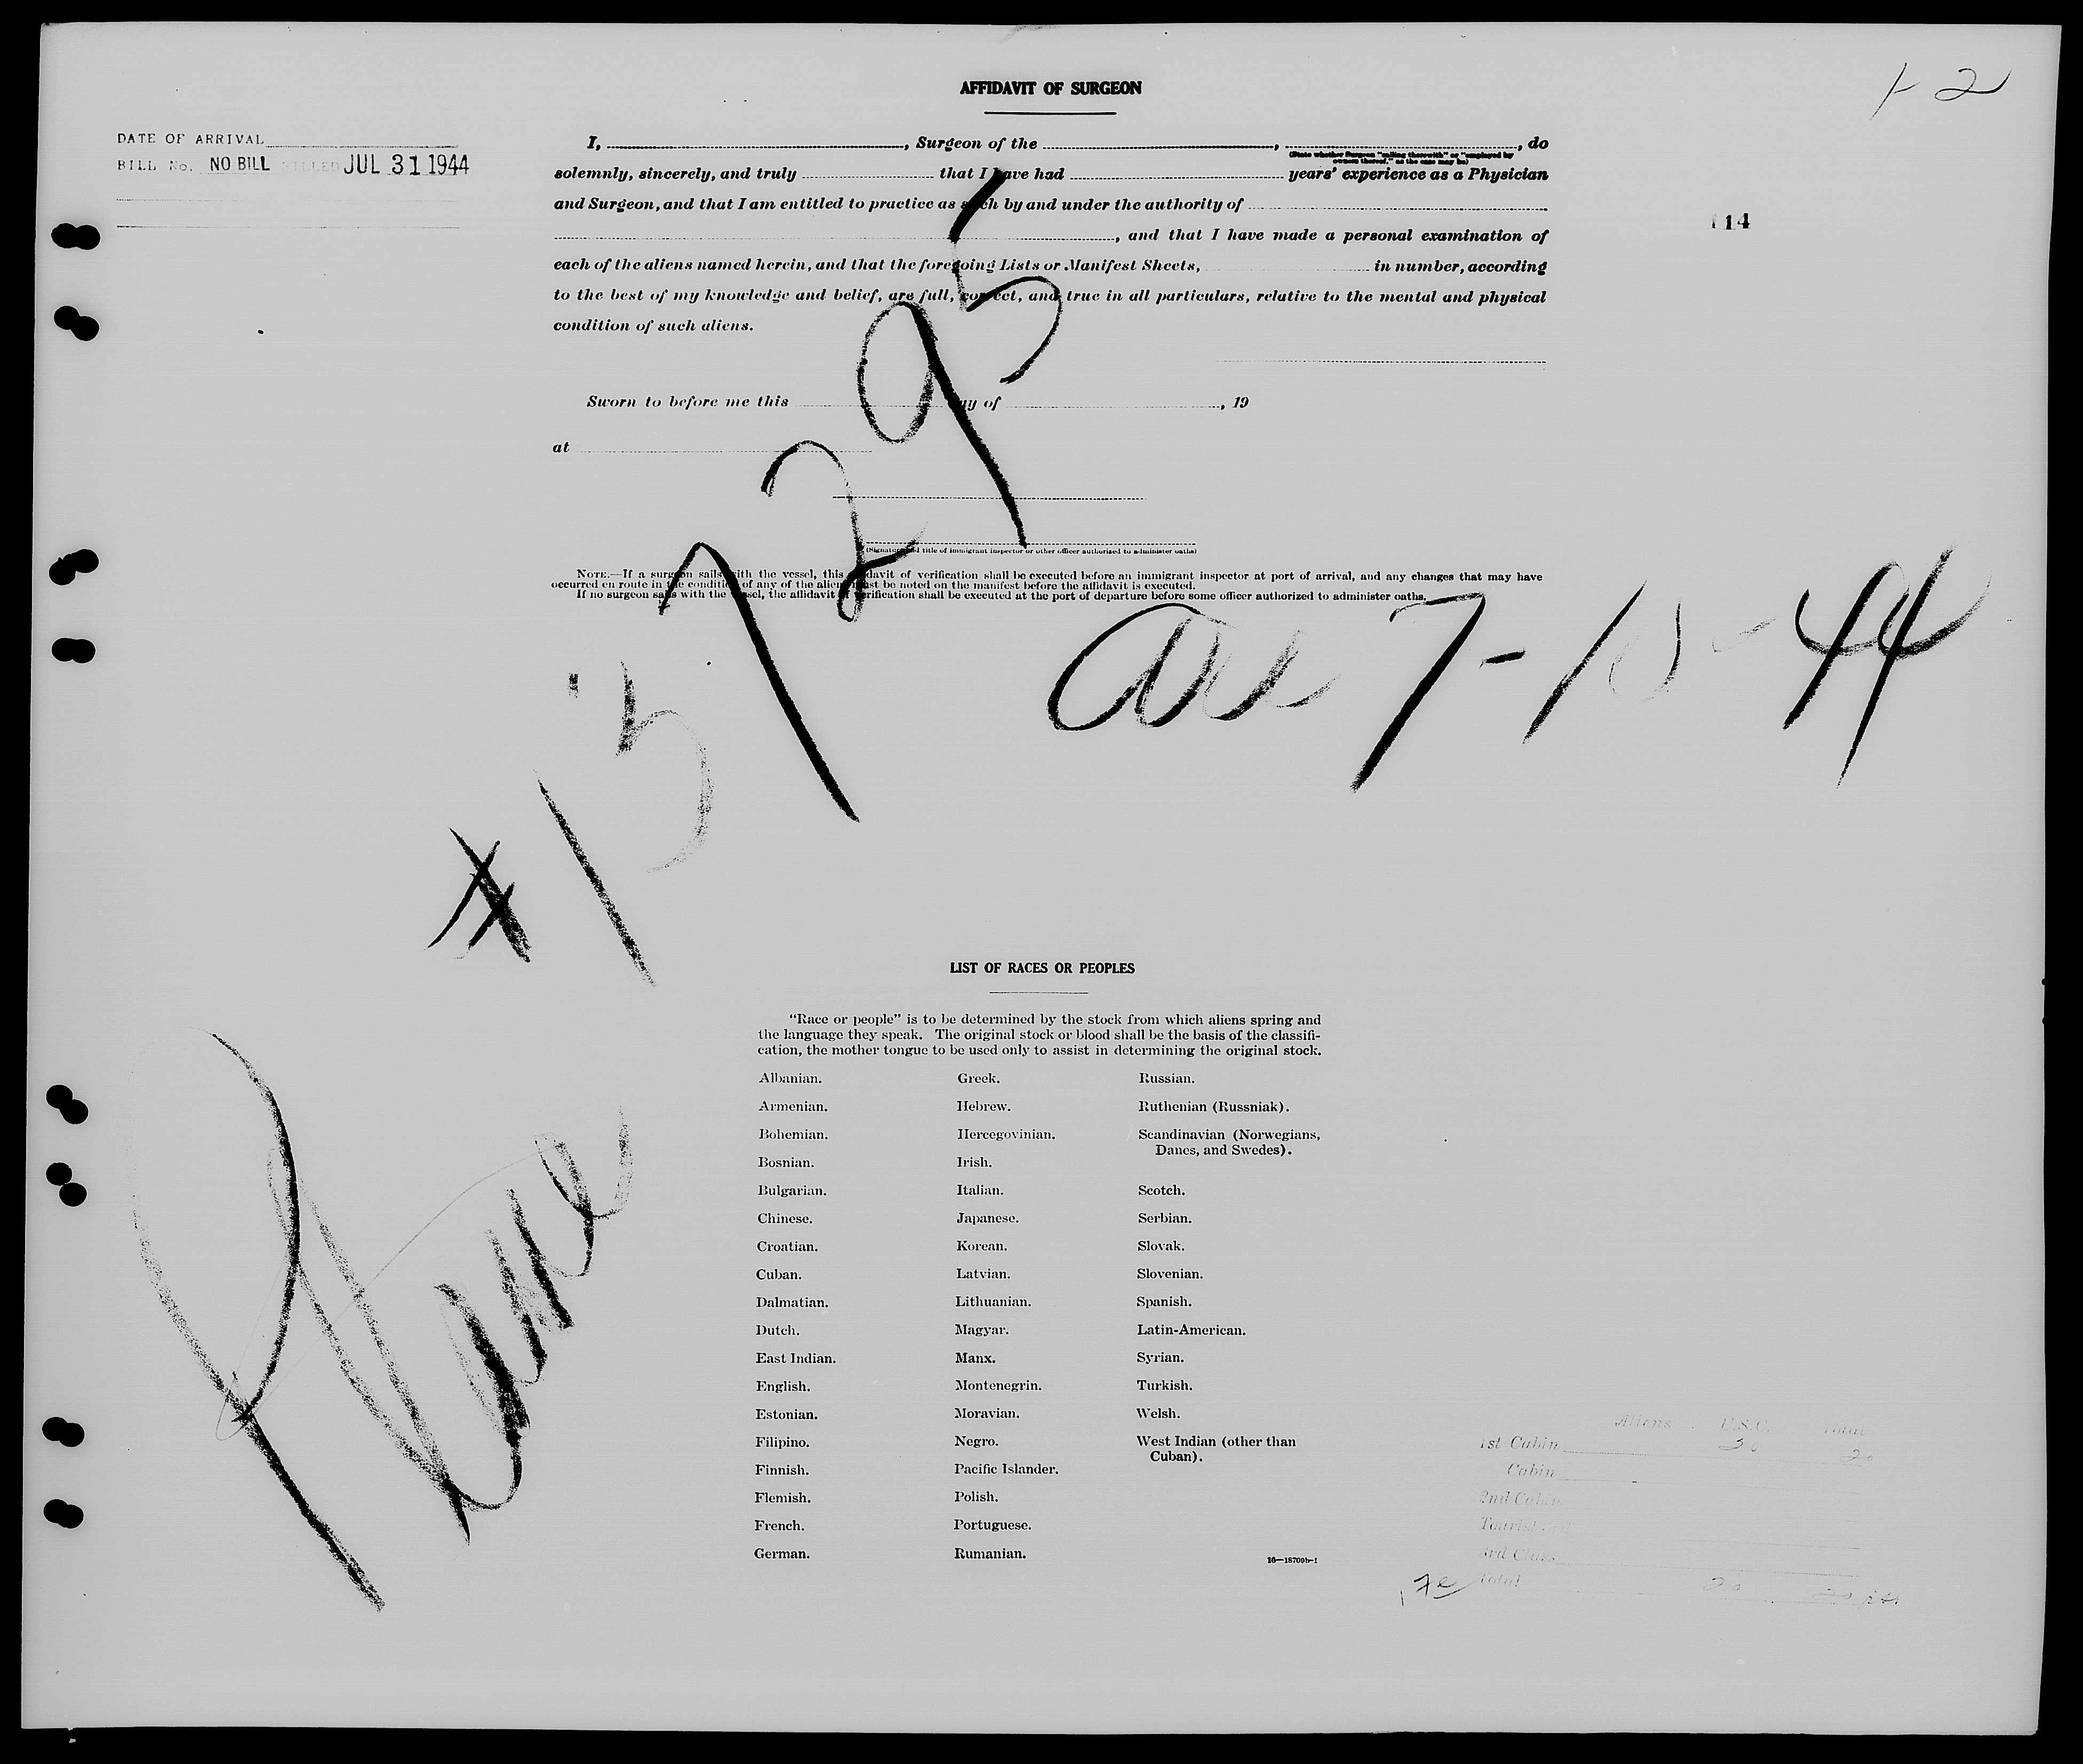 1-2
AFFIDAVIT OF SURGEON
DATE OF ARRIVAL
BILL No. NO BILL BILLED JUL 31 1944
I, , Surgeon of the , , do
(State whether Surgeon "sailing therewith" or "employed by
owners thereof," as the case may be)
solemnly, sincerely, and truly that I have had years' experience as a Physician
and Surgeon, and that I am entitled to practice as such by and under the authority of
114
, and that I have made a personal examination of
each of the aliens named herein, and that the foregoing Lists or Manifest Sheets, in number, according
to the best of my knowledge and belief, are full, correct, and true in all particulars, relative to the mental and physical
condition of such aliens.
Sworn to before me this day of , 19
at
(Signature and title of immigrant inspector or other officer authorized to administer oaths)
NOTE.—If a surgeon sails with the vessel, this affidavit of verification shall be executed before an immigrant inspector at port of arrival, and any changes that may have
occurred en route in the condition of any of the aliens must be noted on the manifest before the affidavit is executed.
If no surgeon sails with the vessel, the affidavit of verification shall be executed at the port of departure before some officer authorized to administer oaths.
Plane #157295
7-10-44
LIST OF RACES OR PEOPLES
"Race or people" is to be determined by the stock from which aliens spring and
the language they speak. The original stock or blood shall be the basis of the classifi-
cation, the mother tongue to be used only to assist in determining the original stock.
Albanian. Greek. Russian.
Armenian. Hebrew. Ruthenian (Russniak).
Bohemian. Hercegovinian. Scandinavian (Norwegians,
Danes, and Swedes).
Bosnian. Irish.
Bulgarian. Italian. Scotch.
Chinese. Japanese. Serbian.
Croatian. Korean. Slovak.
Cuban. Latvian. Slovenian.
Dalmatian. Lithuanian. Spanish.
Dutch. Magyar. Latin-American.
East Indian. Manx. Syrian.
English. Montenegrin. Turkish.
Estonian. Moravian. Welsh.
Filipino. Negro. West Indian (other than
Cuban).
Finnish. Pacific Islander.
Flemish. Polish.
French. Portuguese.
German. Rumanian.
16—18709b-1
Aliens U.S.C. Total
1st Cabin 20
Cabin
2nd Cabin
Tourist
3rd Class
Total 20 20